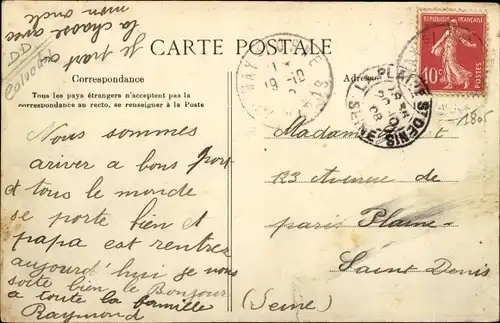 Je part a
la chasse avec
mon oncle
CARTE POSTALE
RÉPUBLIQUE FRANÇAISE
10c
POSTES
Correspondance
Tous les pays étrangers n'acceptent pas la
correspondance au recto, se renseigner à la Poste
Adresse
LA PLAINE ST DENIS
SEINE
19 -10
180c
Nous sommes
ariver a bons port
et tous le monde
se porte bien et
papa est rentrez
aujourd'hui je vous
soite bien le Bonjour
a toute la famille
Raymond
Madame
123 Avenue de
paris Plaine
Saint Denis
(Seine)